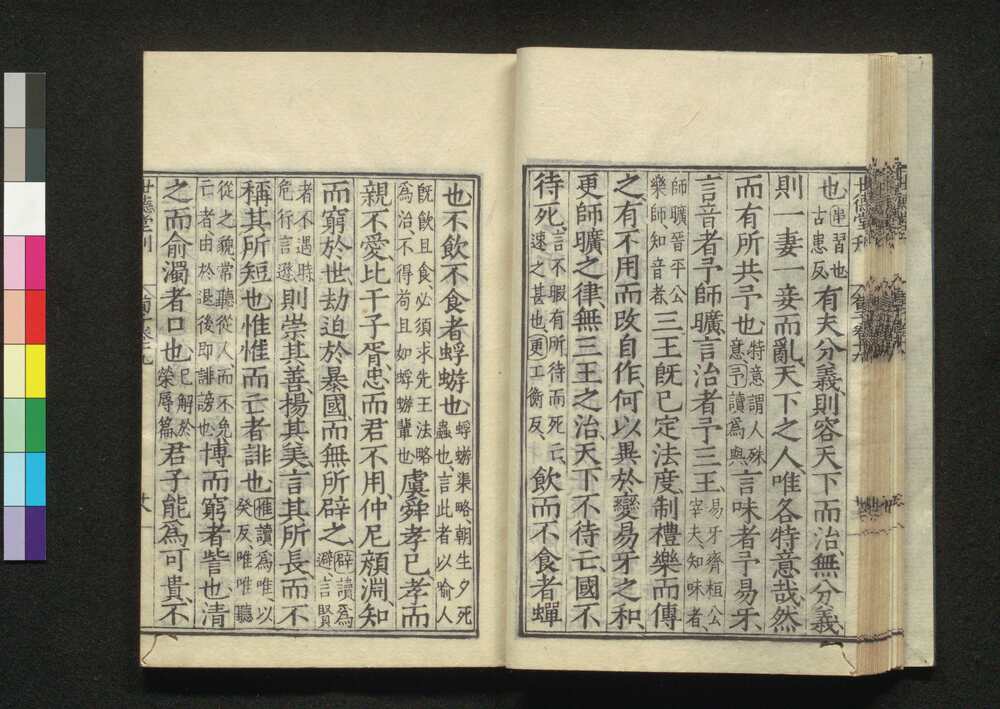 世德堂刊
也串習也古患反有夫分義則容天下而治無分義
則一妻一妾而亂天下之人唯各特意哉然
而有所共予也特意謂人殊意予讀爲與言味者予易牙
言音者予師曠言治者予三王易牙齊桓公宰夫知味者
師曠晉平公樂師知音者三王旣已定法度制禮樂而傳
之有不用而改自作何以異於變易牙之和
更師曠之律無三王之治天下不待亡國不
待死言不暇有所待而死亡速之甚也更工衡反飲而不食者蟬
也不飲不食者蜉蝣也蜉蝣渠略朝生夕死蟲也言此者以喻人
旣飲且食必須求先王法略爲治不得苟且如蜉蝣輩也虞舜孝已孝而
親不愛比干子胥忠而君不用仲尼顏淵知
而窮於世劫迫於暴國而無所辟之辟讀爲避言賢
者不遇時危行言遜則崇其善揚其美言其所長而不
稱其所短也惟惟而亡者誹也惟讀爲唯以癸反唯唯聽
從之貌常聽從人而不免亡者由於退後即誹謗也博而窮者訾也清
之而俞濁者口也已解於榮辱篇君子能爲可貴不
世德堂刊